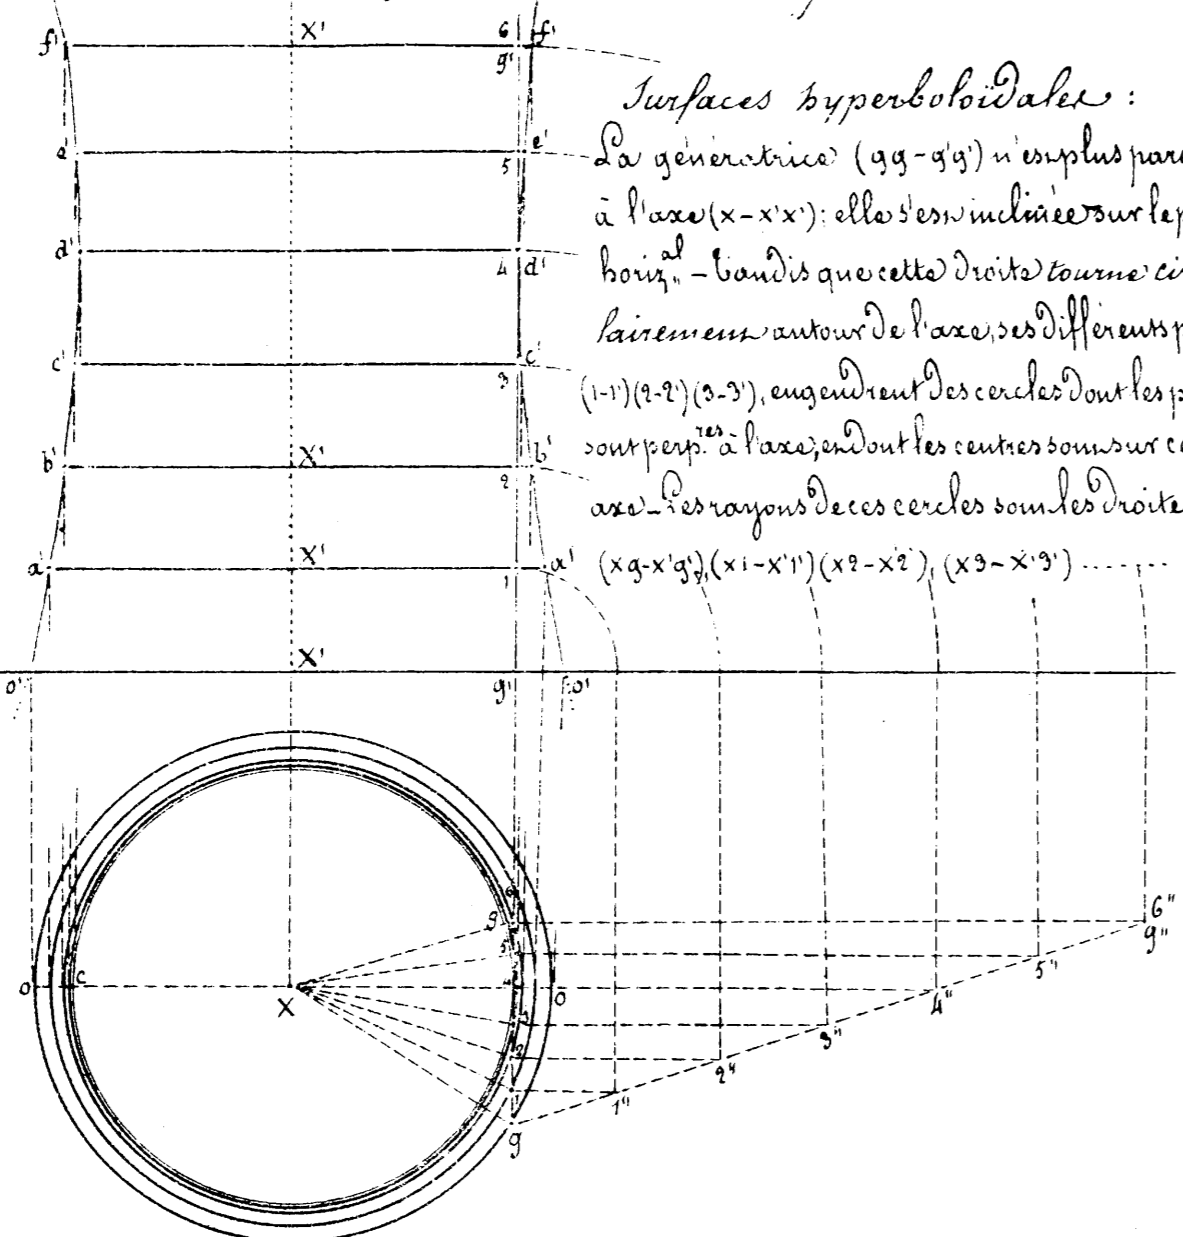 f' X' 6 f'
g'
Surfaces hyperboloïdales :
e' 5 e' La génératrice (gg-g'g') n'est plus para
à l'axe (x-x'x') : elle s'est inclinée sur le p
d' 4 d' horiz.al - tandis que cette droite tourne ci
lairement autour de l'axe, ses différents p
c' 3 c' (1-1')(2-2')(3-3'), engendrent des cercles dont les p
sont perp.res à l'axe, et dont les centres sont sur ce
b' X' 2 b'
axe - Les rayons de ces cercles sont les droite
a' X' 1 a' (xg-x'g'), (x1-x'1')(x2-x'2'), (x3-x'3') ........
X'
o' g' o'
6 6"
g g"
5 5"
o c X 4 o 4"
3 3"
2 2"
1"
g